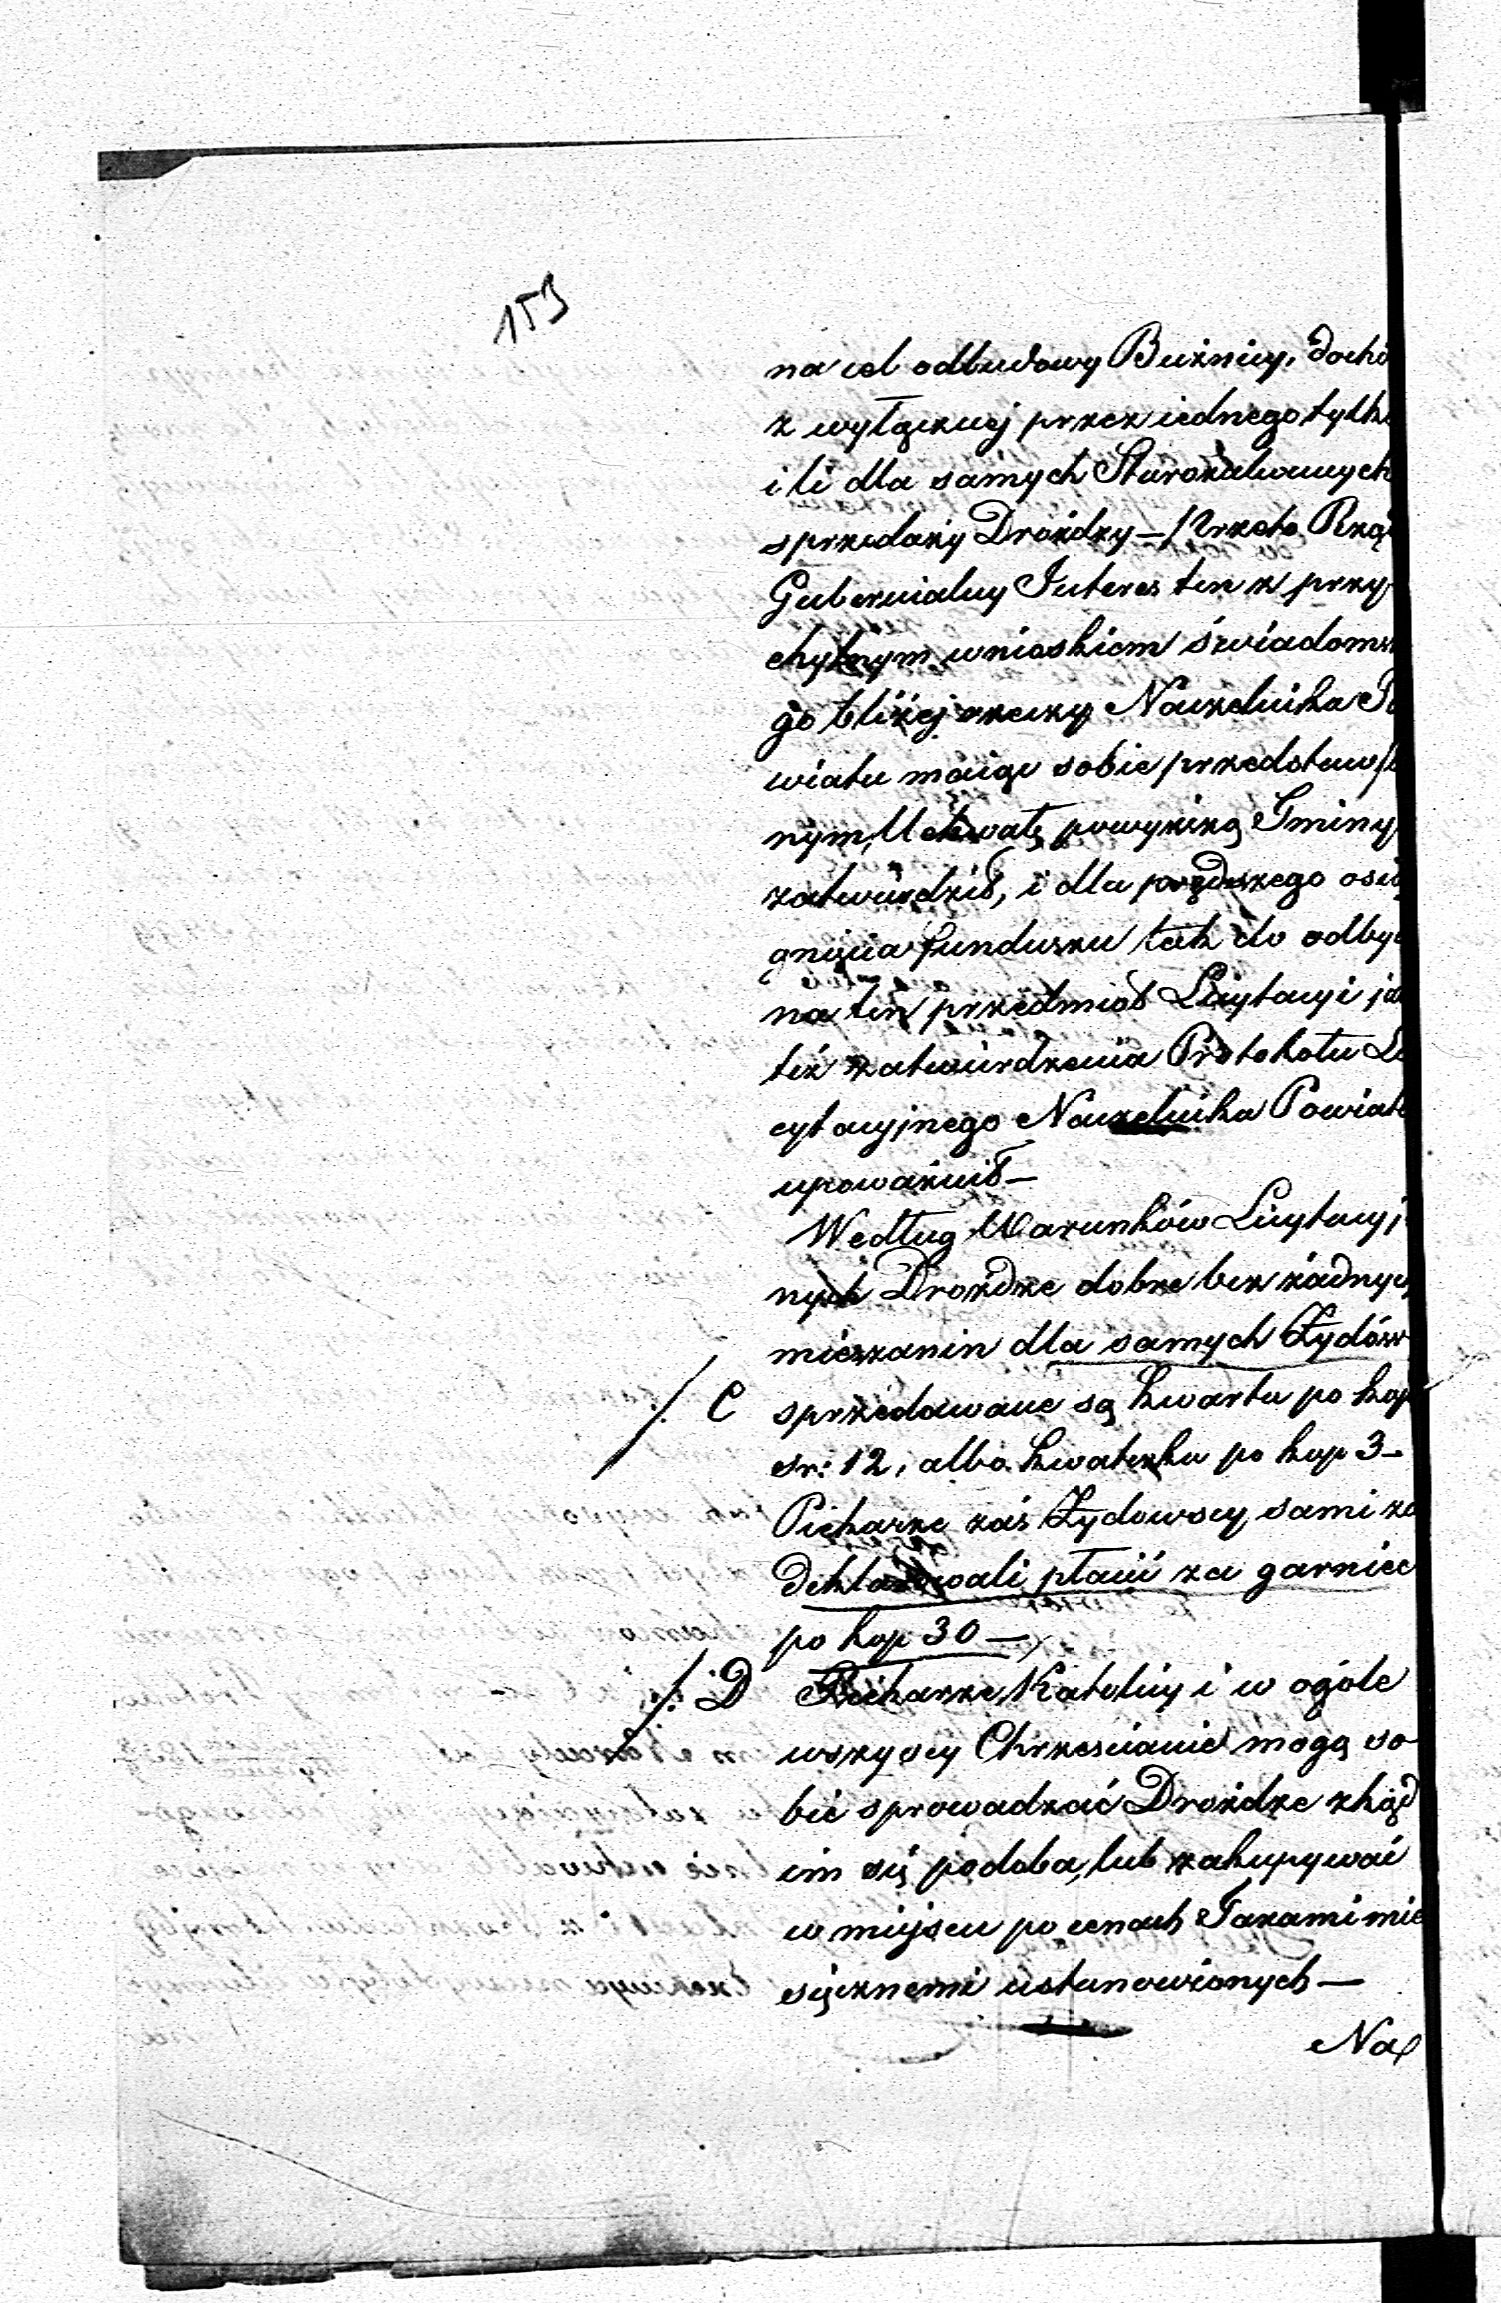 153
na cel odbudowy Bużnicy, docho
z wyłącznej przez iednego tylko
i li dla samych Starozakonnych
sprzedaży Drożdży — / Przeto Rzą
Gubernialny Interes ten z przy-
chylnym wnioskiem świadomsze
go bliżej rzeczy Naczelnika Po
wiatu maiąc sobie przedstawio
nym, Uchwałę powyższą Gminy
zatwierdził, i dla prędszego osią
gnięcia funduszu tak do odbyc
na ten przedmiot Licytacyi jak
też zatwierdzenia Protokołu Li
cytacyjnego Naczelnika Powiatu
upoważnił —
Według Warunków Licytacyj
nych Drożdże dobre bez żadnych
mieszanin dla samych Żydów
/. C sprzedawane są kwarta po kop
sr: 12, albo kwaterka po kop 3 —
Piekarze zaś Żydowscy sami za
deklarowali płacić za garniec
po kop 30 —
/. D Piekarze Katolicy i w ogóle
wszyscy Chrześcianie mogą so
bie sprowadzać Drożdże zkąd
im się podoba, lub zakupywać
w miejscu po cenach Taxami mie
sięcznemi ustanowionych —
Na